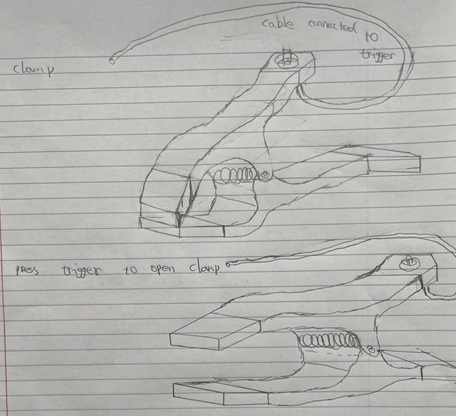 cable connected to
trigger
clamp
press trigger to open clamp